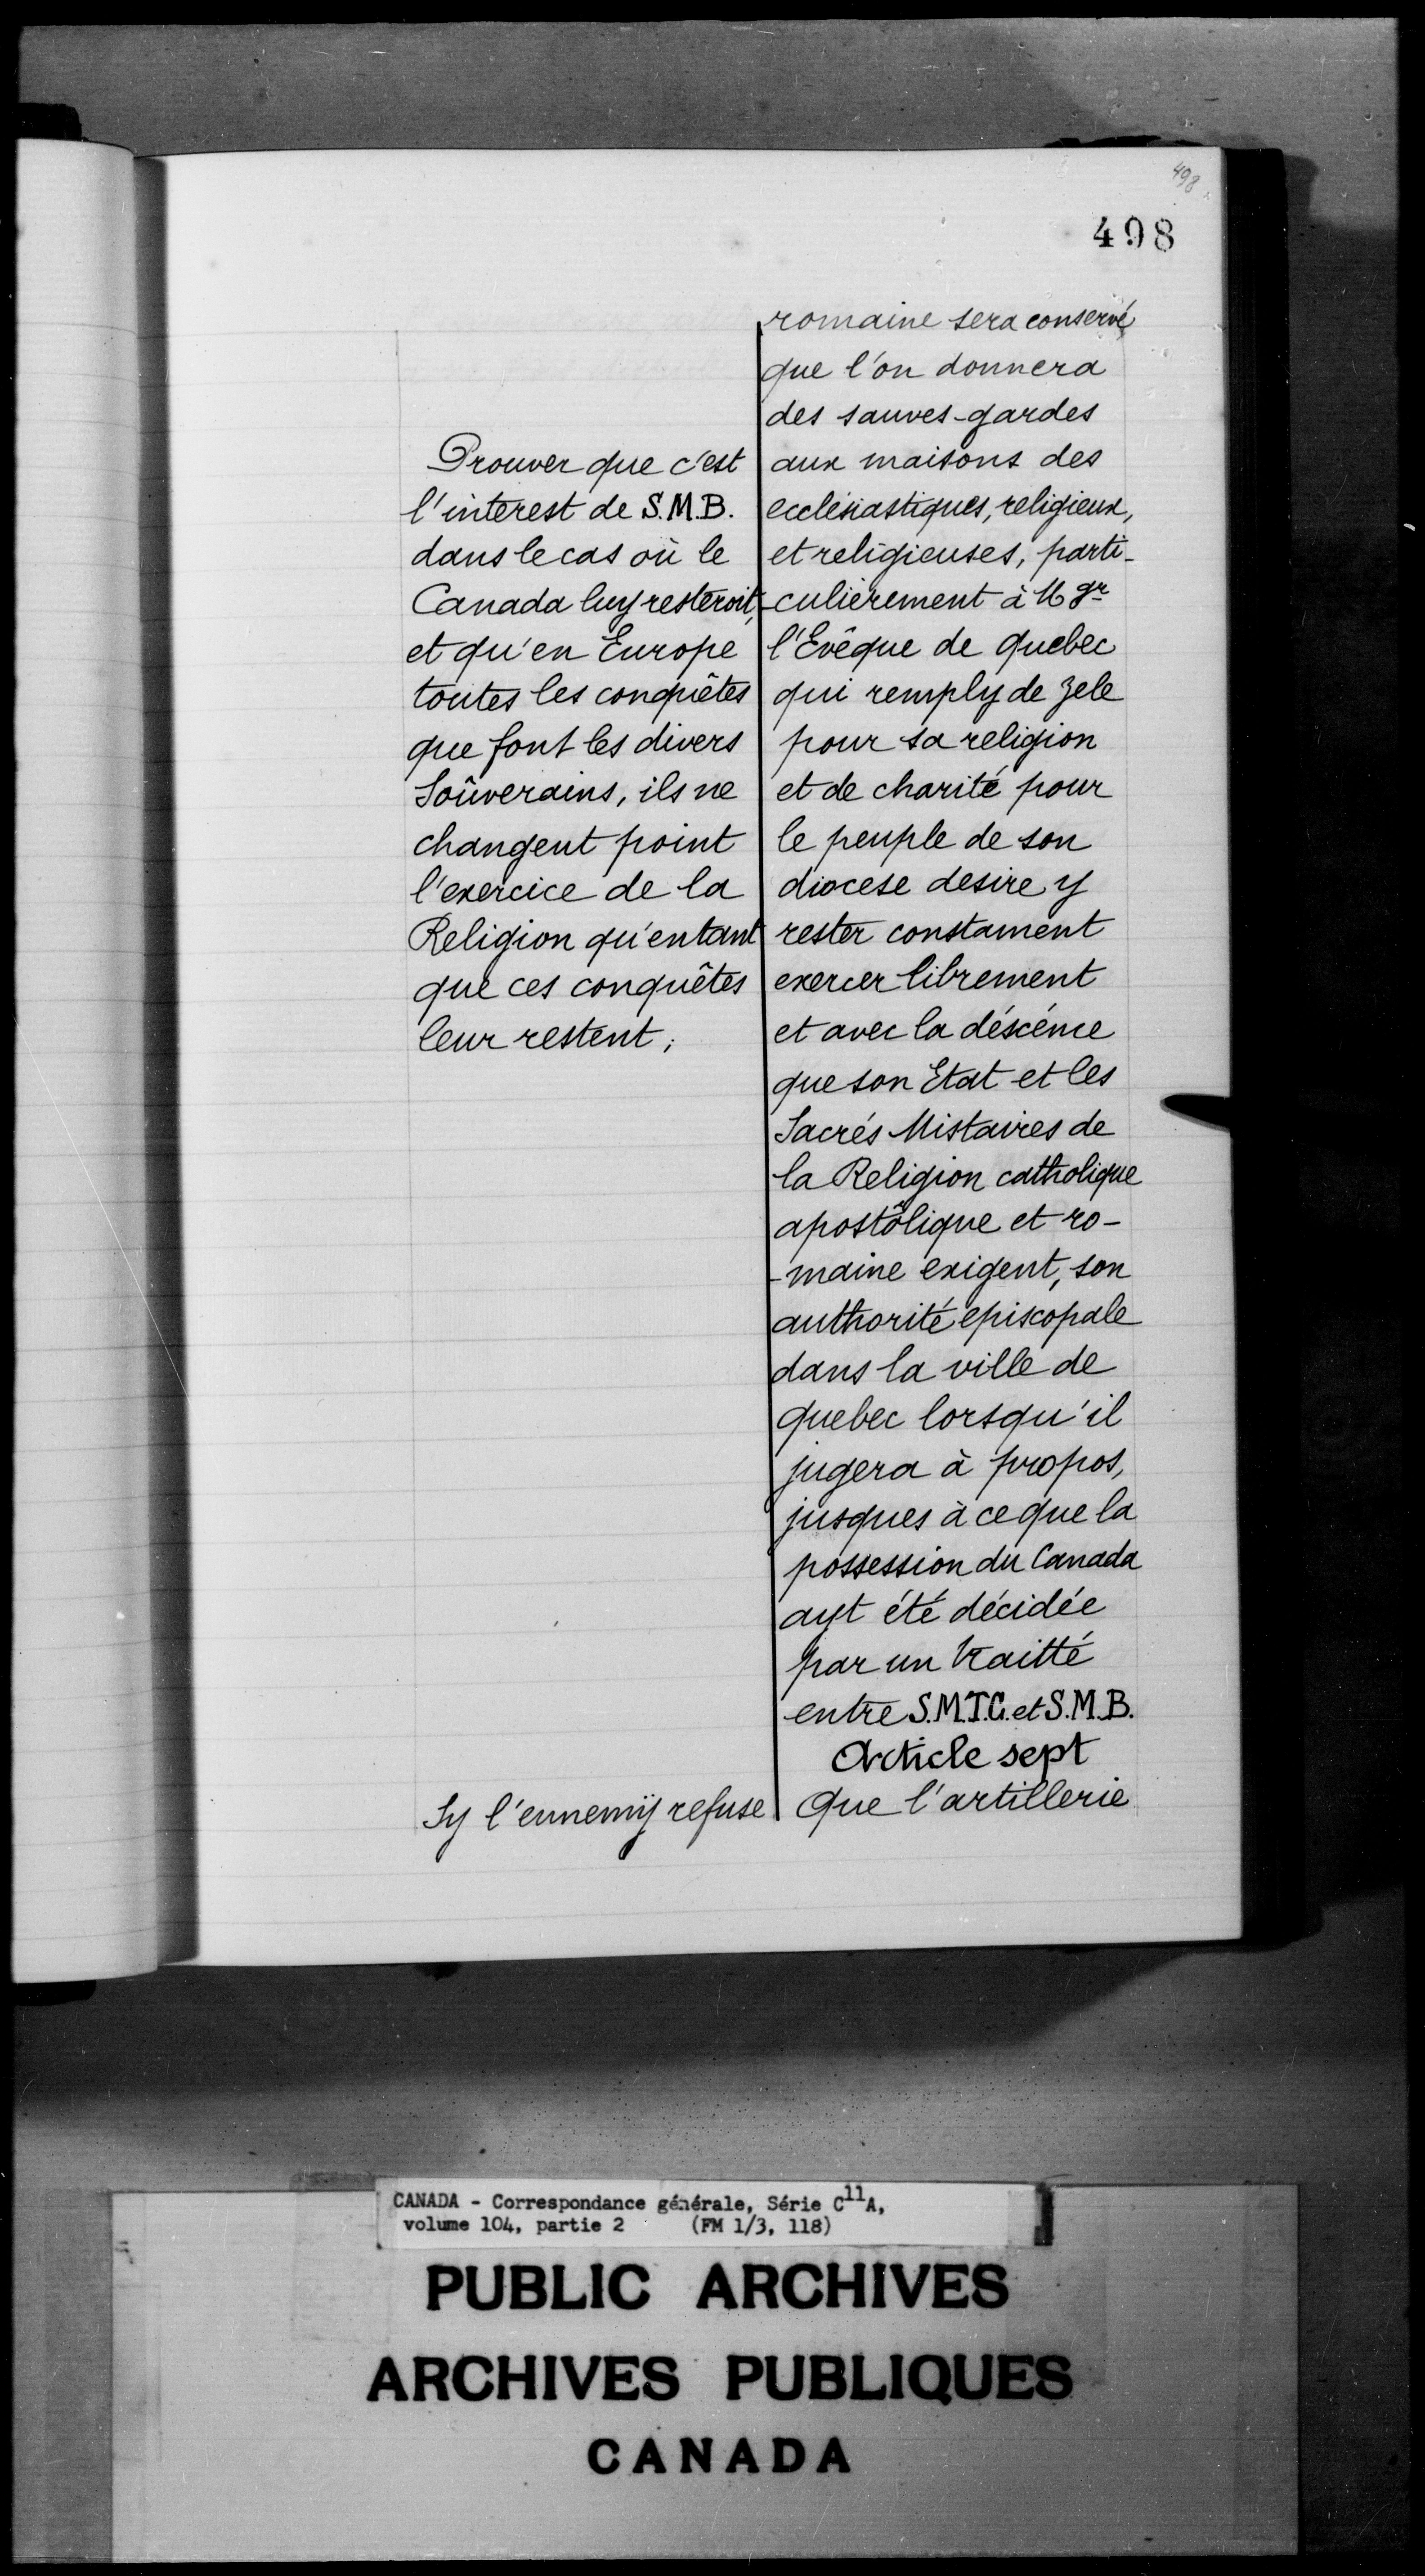 498
498
Prouver que c'est
l'interest de S.M.B.
dans le cas où le
Canada luy resteroit,
et qu'en Europe
toutes les conquêtes
que font les divers
Soûverains, ils ne
changent point
l'exercice de la
Religion qu'entant
que ces conquêtes
leur restent;
Sy l'ennemÿ refuse
romaine sera conservé,
que l'on donnera
des sauves-gardes
aux maisons des
ecclésiastiques, religieux,
et religieuses, parti-
-culièrement à Mgr
l'Evêque de quebec
qui remply de zele
pour sa religion
et de charité pour
le peuple de son
diocese desire y
rester constament
exercer librement
et avec la déscénce
que son Etat et les
Sacrés Mistaires de
la Religion catholique
apostôlique et ro-
-maine exigent, son
authorité episcopale
dans la ville de
quebec lorsqu'il
jugera à propos,
jusques à ce que la
possession du Canada
ayt été décidée
par un traitté
entre S.M.T.C. et S.M.B.
Article sept
Que l'artillerie
CANADA - Correspondance générale, Série C11A,
volume 104, partie 2 (FM 1/3, 118)
PUBLIC ARCHIVES
ARCHIVES PUBLIQUES
CANADA